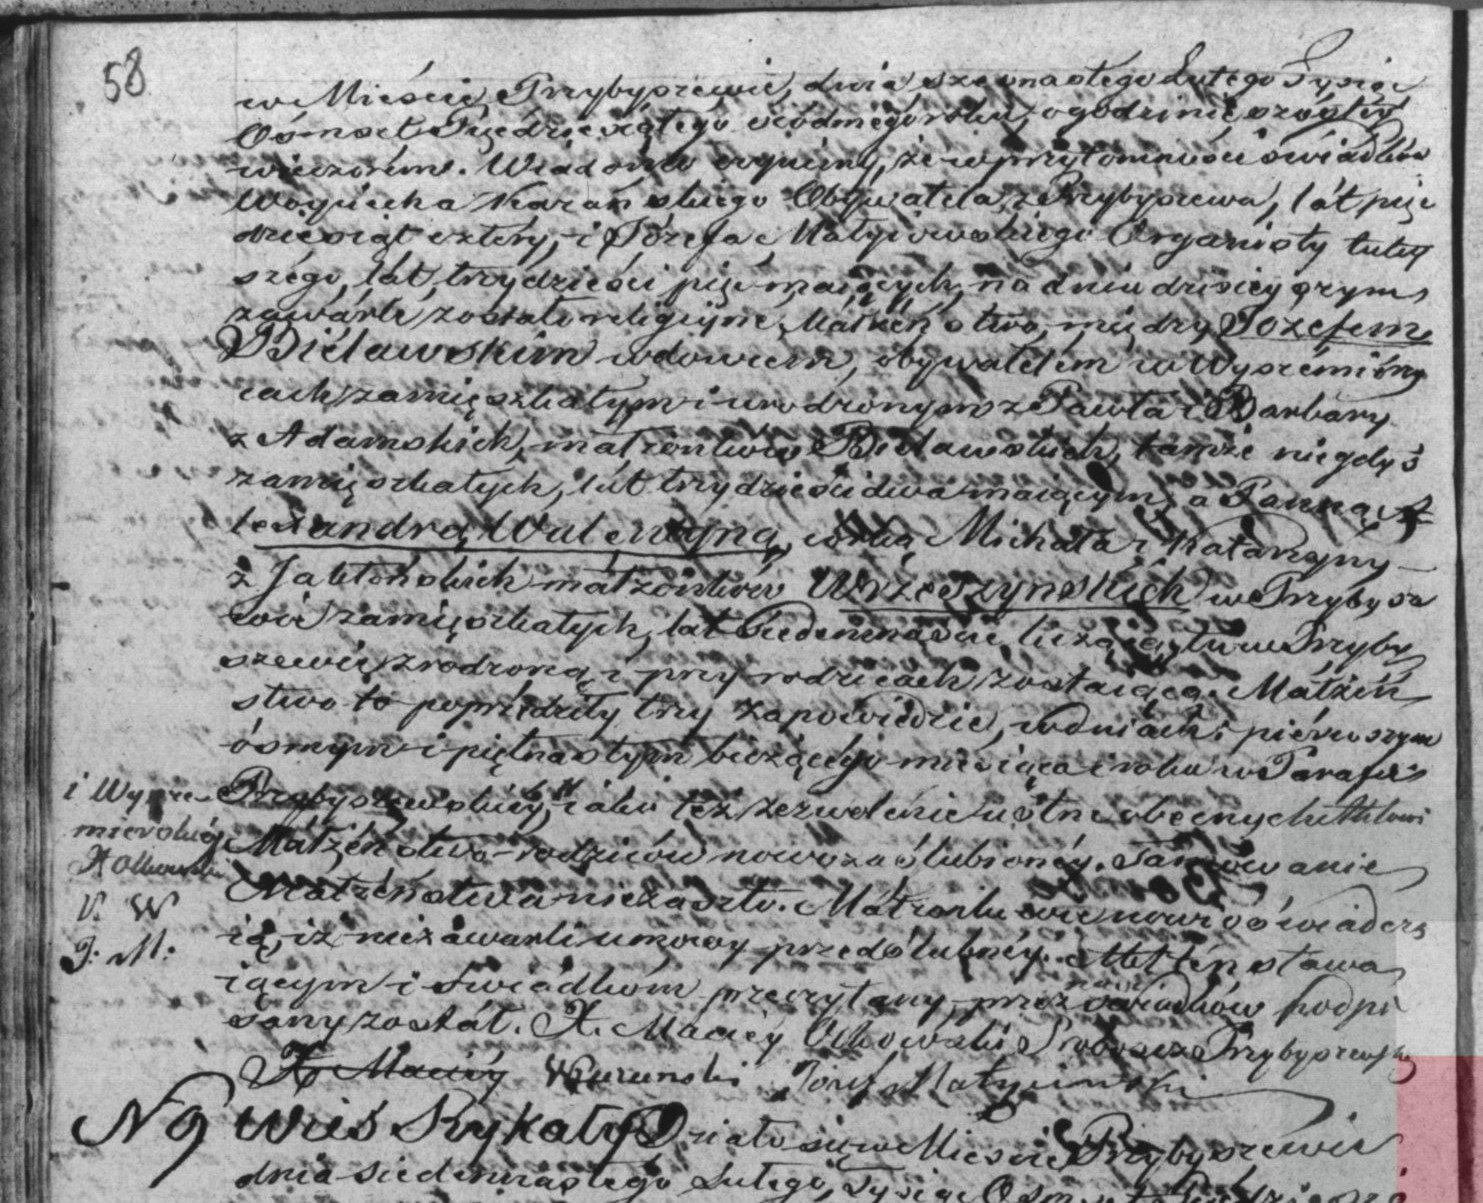 58
w Mieście Przybyszewie, dnia szesnastego Lutego Tysiąc
Ośmset Piędziesiątego siódmego roku, o godzinie szóstéy
wieczorem. Wiadomo czynimy, że w przytomności świadków
Woyciecha Karańskiego Obywatela z Przybyszewa, lat pięc
dziesiąt cztery, i Józefa Matyiewskiego Organisty tutey
szego, lat trzydzieści pięć maiących, na dniu dzisieyszym
zawarte zostało religiyne Małżeństwo, między Józefem
Bielawskim wdowcem, obywatelem w Wyszemierzy
cach zamięszkałym i urodzonym z Pawła i Barbary
z Adamskich, małżonków Bielawskich, tamże niegdyś
zamięszkałych, lat trzydzieści dwa maiącym, a Panną A
lexandrą Walentyną, córką Michała i Katarzyny
z Jabłońskich małżonków Wrzeszczyńskich w Przybysze
wie zamięszkałych, lat siedemnaście liczącą, tu w Przyby
szewie zrodzoną i przy rodzicach zostaiącą. Małżeń
stwo to poprzedziły trzy zapowiedzie, w dniach: pierwszym
ósmym i piętnastym bieżącego miesiąca i roku w Parafii
i Wysze- Przybyszewskiéy, iako też zezwolenie ustne obecnych aktowi
mierskiéy Małżeństwa rodziców nowozaślubionéy. Tamowanie
Małżeństwa niezaszło. Małżonkowie nowi oświadcza
V. W
J. M. ią, iż niezawarli umowy przedślubnéy. Akt ten stawa
iącym i świadkom przeczytany, przez nas i świadków podpi
sany został. X. Maciéy Ożkowski Proboszcz Przybyszewski
X. Maciéy W Karanski Józef Matyiewski
N 9 Wieś Rykały Działo się w Mieście Przybyszewie
dnia siedemnastego Lutego, Tysiąc Ośm